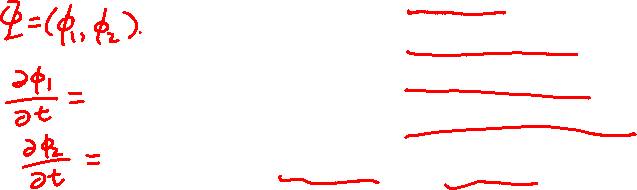 Φ=(ϕ₁, ϕ₂).
∂ϕ₁/∂t =
∂ϕ₂/∂t =